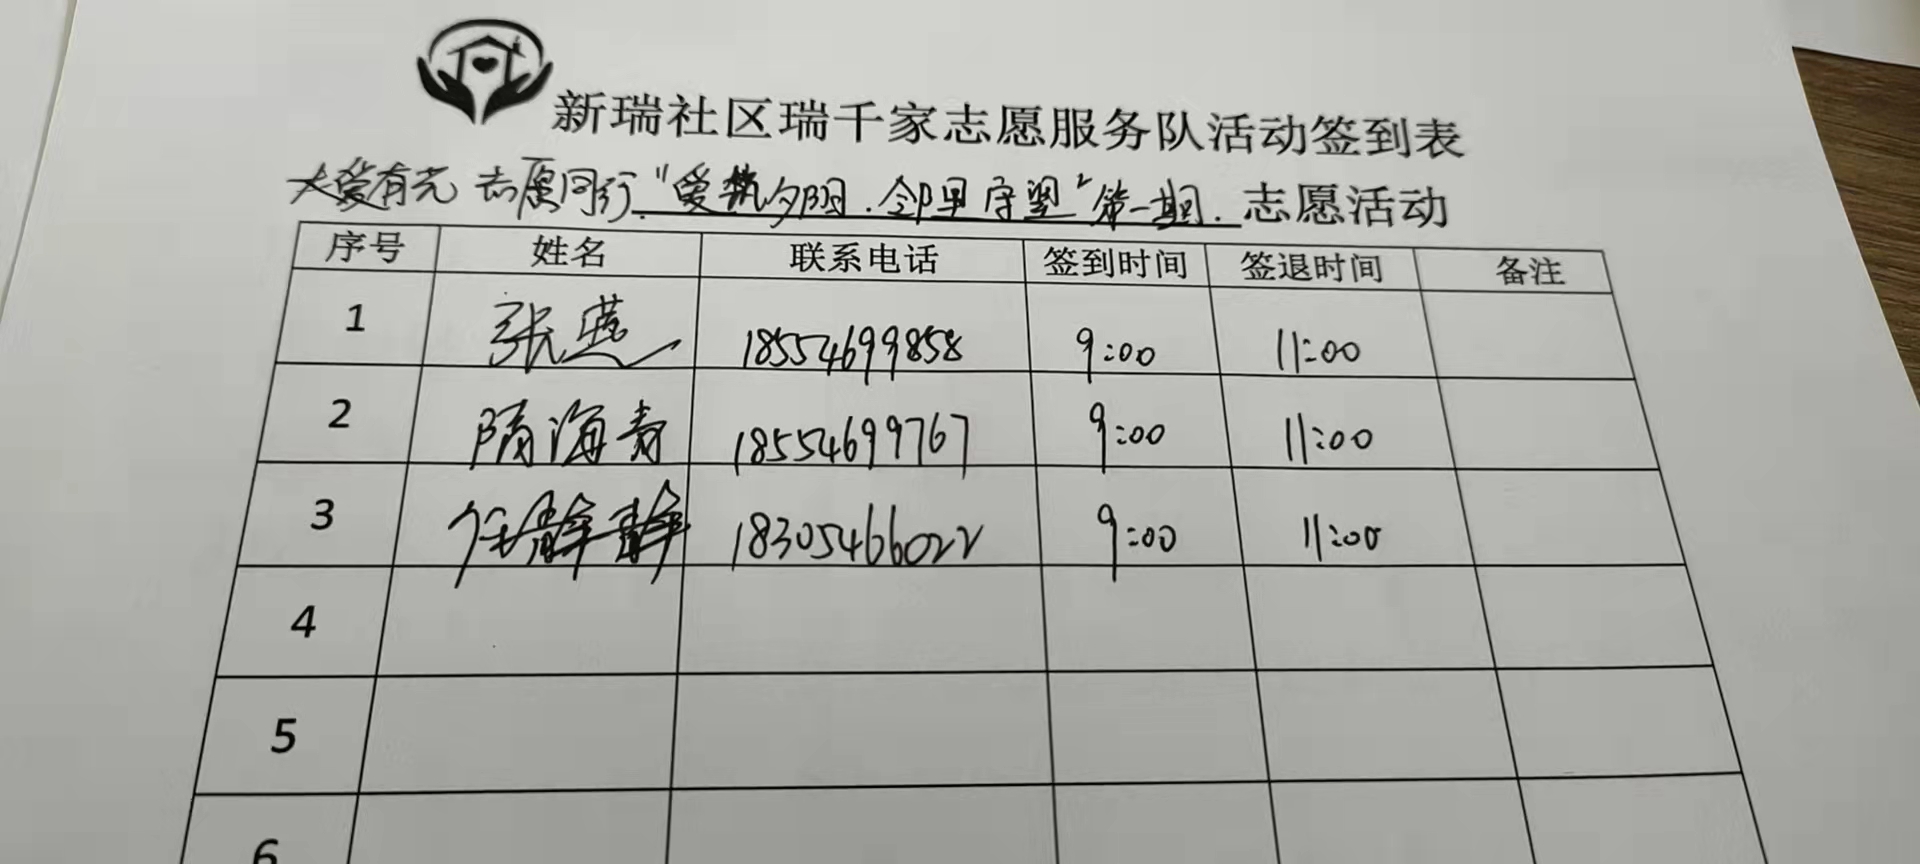 新瑞社区瑞千家志愿服务队活动签到表
大爱有光 志愿同行."爱筑夕阳.邻里守望"第一期. 志愿活动
序号 姓名 联系电话 签到时间 签退时间 备注
1 张燕 18554699858 9:00 11:00
2 隋海青 18554699767 9:00 11:00
3 任静静 18305466022 9:00 11:00
4
5
6